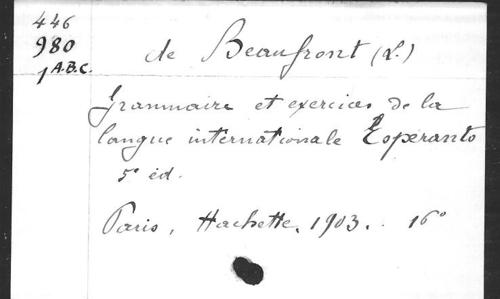 446
980
1 A.B.C.
de Beaufront (L.)
Grammaire et exercices de la
langue internationale Esperanto
5e éd.
Paris, Hachette, 1903. 16°